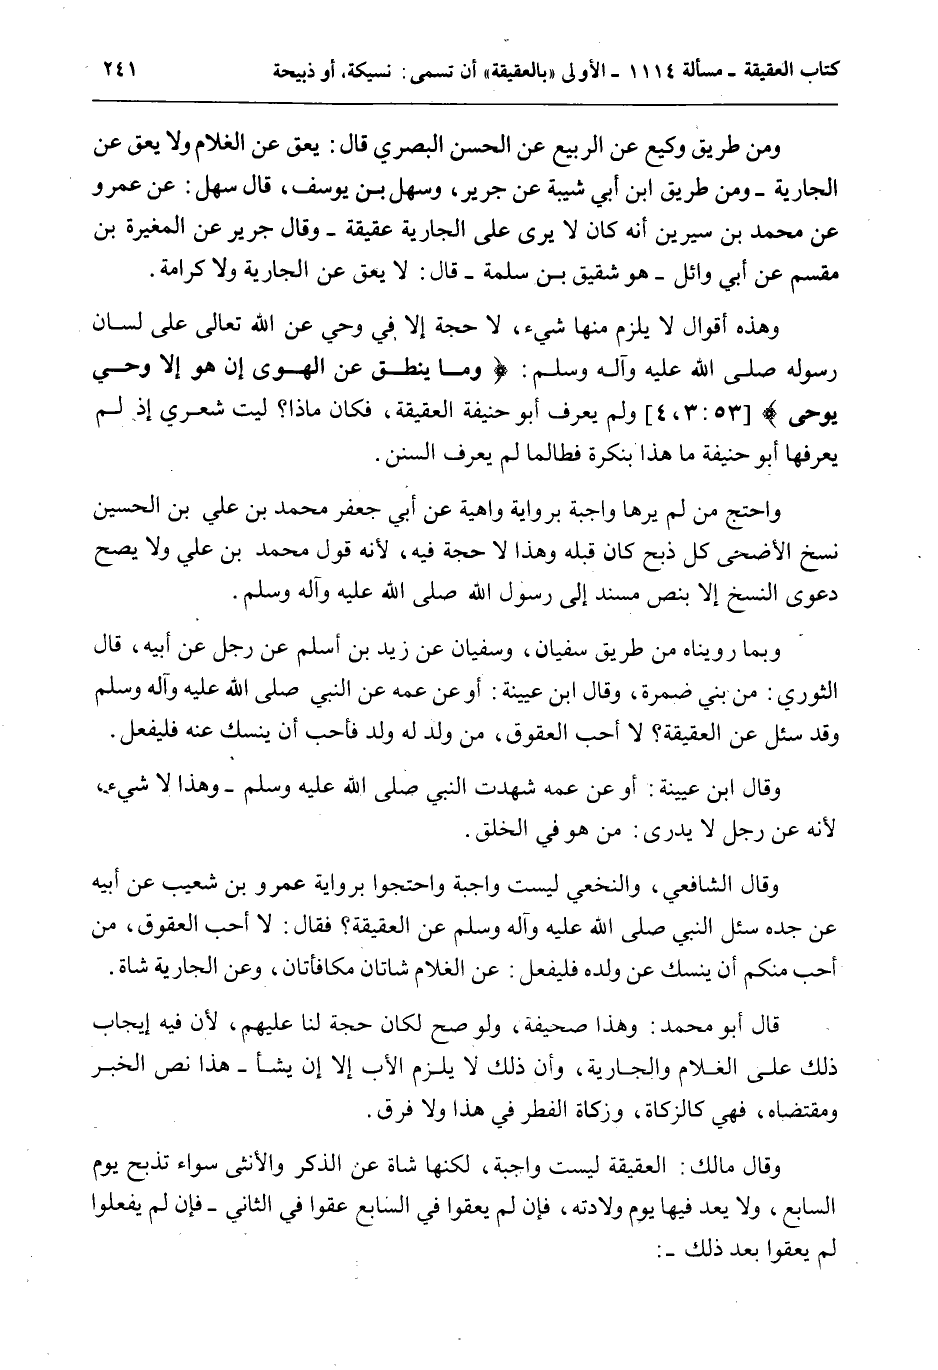 كتاب العقيقة ـ مسألة ١١١٤ ـ الأولى «بالعقيقة» أن تسمى: نسيكة، أو ذبيحة ٢٤١
ومن طريق وكيع عن الربيع عن الحسن البصري قال: يعق عن الغلام ولا يعق عن
الجارية ـ ومن طريق ابن أبي شيبة عن جرير، وسهل بن يوسف، قال سهل: عن عمرو
عن محمد بن سيرين أنه كان لا يرى على الجارية عقيقة ـ وقال جرير عن المغيرة بن
مقسم عن أبي وائل ـ هو شقيق بن سلمة ـ قال: لا يعق عن الجارية ولا كرامة.
وهذه أقوال لا يلزم منها شيء، لا حجة إلا في وحي عن الله تعالى على لسان
رسوله صلى الله عليه وآله وسلم: ﴿ وما ينطق عن الهوى إن هو إلا وحي
يوحى ﴾ [٥٣: ٣، ٤] ولم يعرف أبو حنيفة العقيقة، فكان ماذا؟ ليت شعري إذ لم
يعرفها أبو حنيفة ما هذا بنكرة فطالما لم يعرف السنن.
واحتج من لم يرها واجبة برواية واهية عن أبي جعفر محمد بن علي بن الحسين
نسخ الأضحى كل ذبح كان قبله وهذا لا حجة فيه، لأنه قول محمد بن علي ولا يصح
دعوى النسخ إلا بنص مسند إلى رسول الله صلى الله عليه وآله وسلم.
وبما رويناه من طريق سفيان، وسفيان عن زيد بن أسلم عن رجل عن أبيه، قال
الثوري: من بني ضمرة، وقال ابن عيينة: أو عن عمه عن النبي صلى الله عليه وآله وسلم
وقد سئل عن العقيقة؟ لا أحب العقوق، من ولد له ولد فأحب أن ينسك عنه فليفعل.
وقال ابن عيينة: أو عن عمه شهدت النبي صلى الله عليه وسلم ـ وهذا لا شيء،
لأنه عن رجل لا يدرى: من هو في الخلق.
وقال الشافعي، والنخعي ليست واجبة واحتجوا برواية عمرو بن شعيب عن أبيه
عن جده سئل النبي صلى الله عليه وآله وسلم عن العقيقة؟ فقال: لا أحب العقوق، من
أحب منكم أن ينسك عن ولده فليفعل: عن الغلام شاتان مكافأتان، وعن الجارية شاة.
قال أبو محمد: وهذا صحيفة، ولو صح لكان حجة لنا عليهم، لأن فيه إيجاب
ذلك على الغلام والجارية، وأن ذلك لا يلزم الأب إلا إن يشأ ـ هذا نص الخبر
ومقتضاه، فهي كالزكاة، وزكاة الفطر في هذا ولا فرق.
وقال مالك: العقيقة ليست واجبة، لكنها شاة عن الذكر والأنثى سواء تذبح يوم
السابع، ولا يعد فيها يوم ولادته، فإن لم يعقوا في السابع عقوا في الثاني ـ فإن لم يفعلوا
لم يعقوا بعد ذلك ـ: